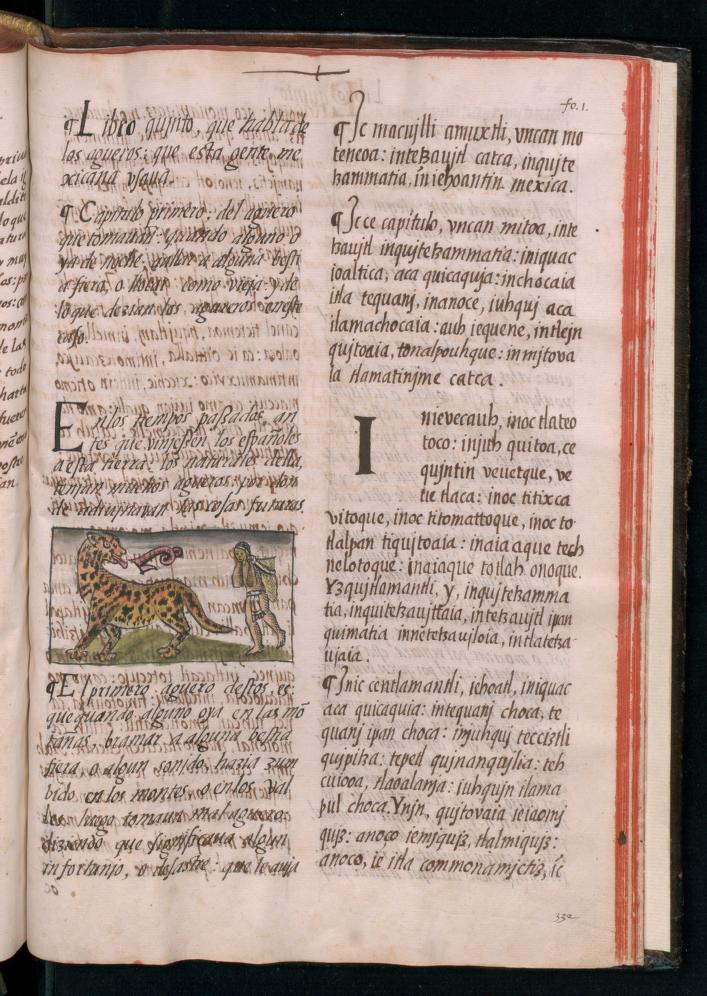 fo. 1.
¶Libro quinto, que habla de
los agueros: que esta gente me
xicana vsaua.
¶ Capitulo primero: del aguero
que tomauan: quando alguno o
ya de noche, aullar a alguna besti
a fiera, o llorar como vieja: y de
lo que dezian los agureros en este
caso.
En los tiempos passados, an
tes que viniessen los españoles
a esta tierra: los naturales della,
tenian muchos agueros, por don
de adiuinauan las cosas futuras.
¶El primero aguero destos, es:
que quando alguno oya en las mō
tañas bramar a alguna bestia
fiera, o algun sonido hazia zum
bido en los montes, o en los val
les: luego tomaua mal aguero,
diziendo que significaua algun
infortunjo, o desastre: que le auja
¶Jc macujlli amuxtli, vncan mo
teneoa: intetzaujtl catca, inqujte
tzammatia, in iehoantin mexica.
¶Jc ce capitulo, vncan mitoa, inte
tzaujtl inqujtetzammatia: iniquac
ioaltica, aca quicaquja: inchocaia
itla tequanj, inanoce, iuhquj aca
ilamachocaia: auh iequene, intlejn
qujtoaia, tonalpouhque: inmjtova
ia tlamatinjme catca.
Inievecauh, inoc tlateo
toco: injuh quitoa, ce
qujntin veuetque, ve
ue tlaca: inoc titixca
vitoque, inoc titomattoque, inoc to
tlalpan tiqujtoaia: inaiaaque tech
nelotoque: inaiaque totlah onoque.
Yzqujtlamantli, y, inqujtetzamma
tia, inquitetzaujttaia, intetzaujtl ipan
quimatia innetetzaujloia, intlatetza
ujaia.
¶Jnic centlamantli, iehoatl, iniquac
aca quicaquia: intequanj choca, te
quanj ipan choca: injuhquj tecciztli
qujpitza: tepetl qujnanqujlia: teh
cuioca, tlaoalanja: iuhqujn ilama
pul choca. Ynjn, qujtovaia ieiaomj
qujz: anoço iemjqujz, tlalmiqujz:
anoço, ie itla commonamjctiz, ic
332